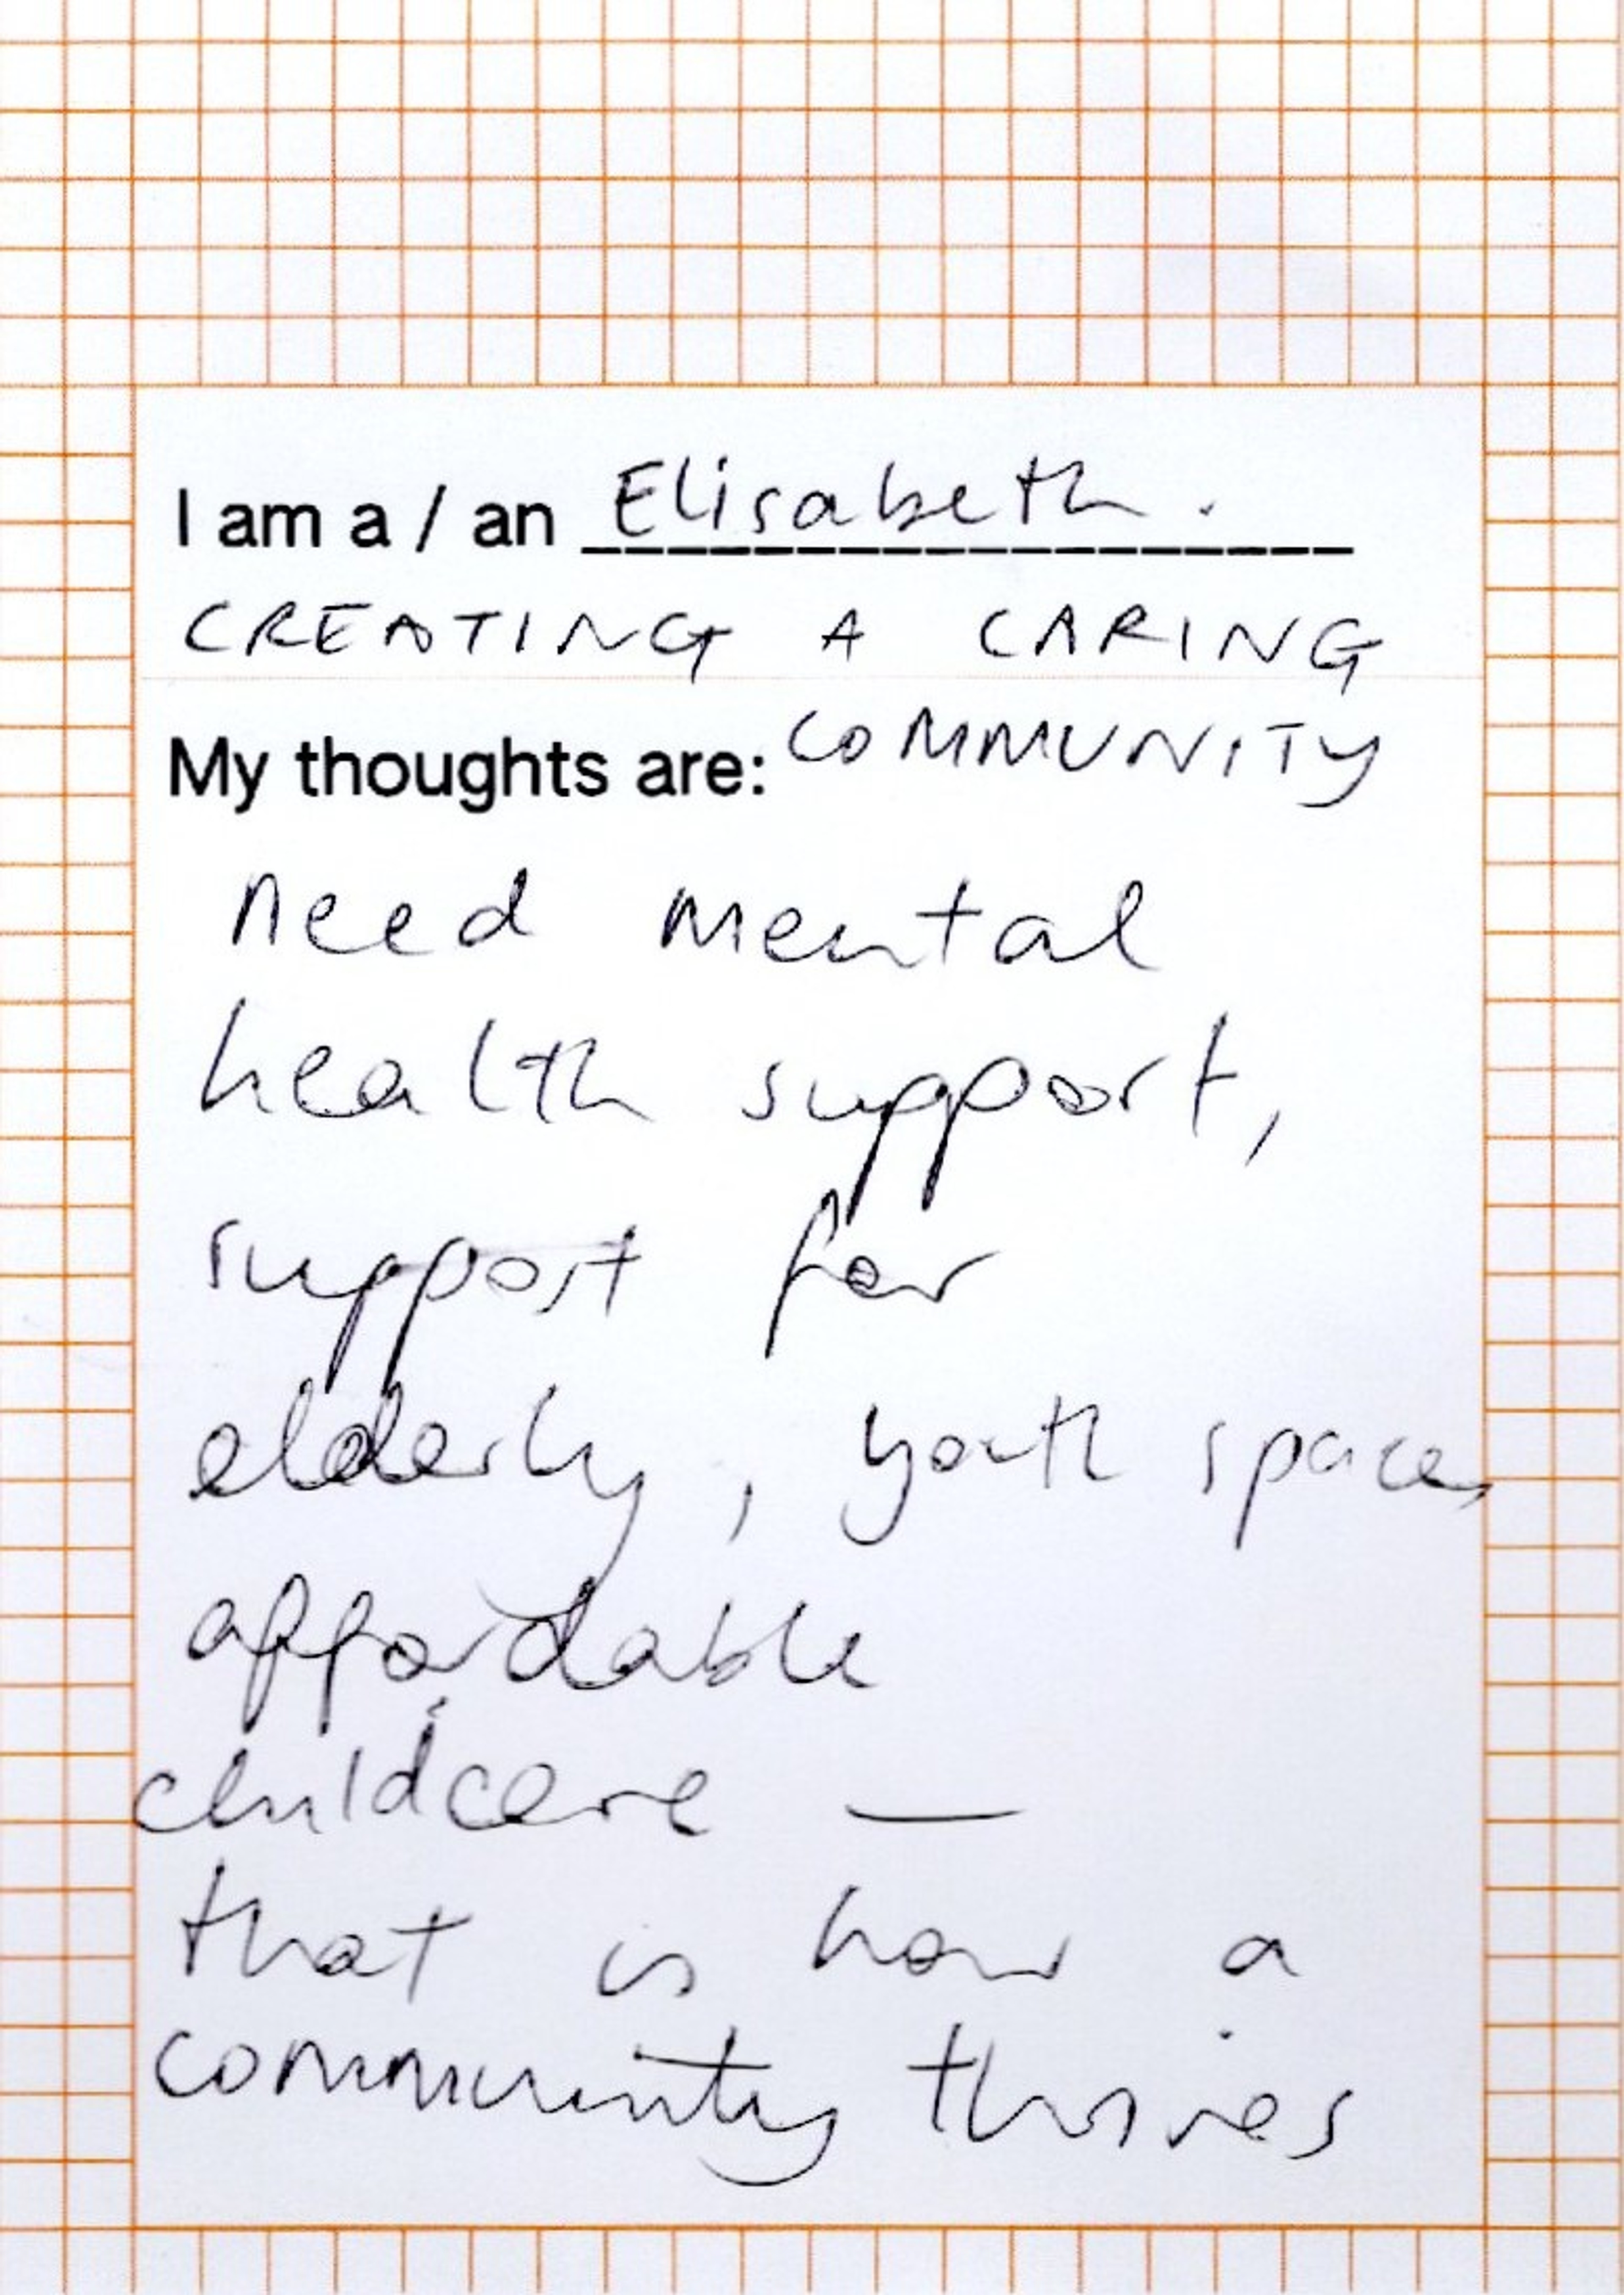 I am a / an Elisabeth.
CREATING A CARING
My thoughts are: COMMUNITY
need mental
health support,
support for
elderly, youth space,
affordable
childcare —
that is how a
community thrives